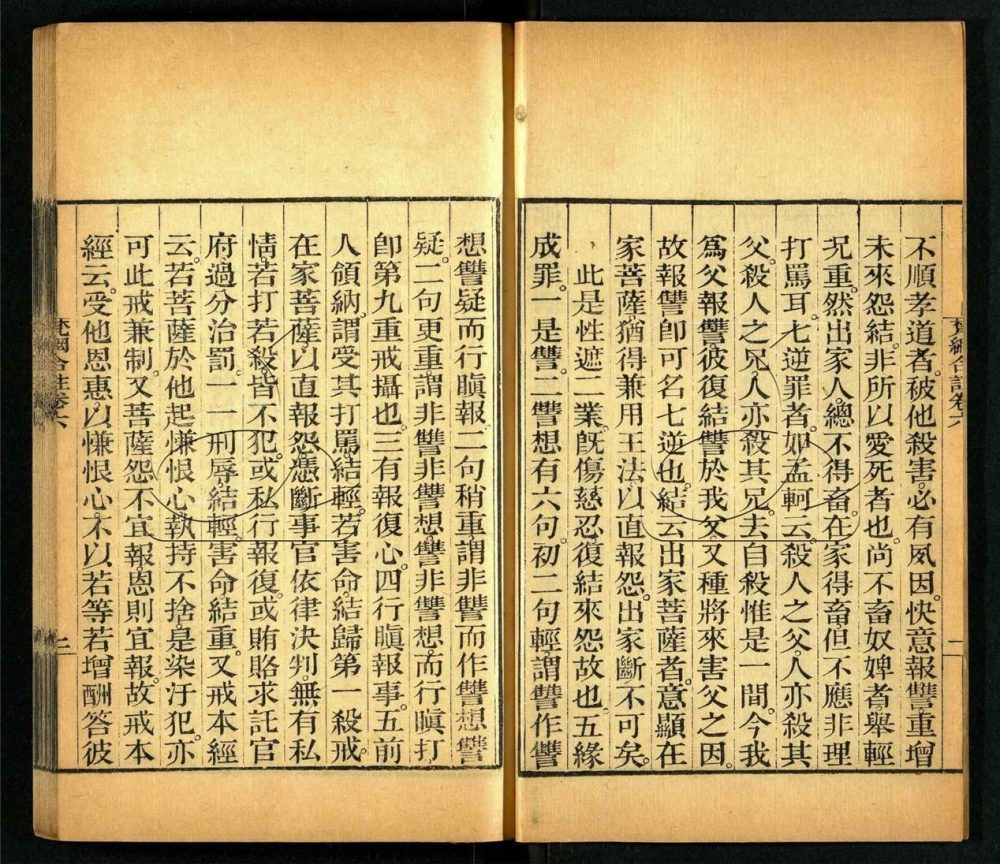 不順孝道者。被他殺害。必有夙因。快意報讐。重增
未來怨結。非所以愛死者也。尚不畜奴婢者。舉輕
況重。然出家人。總不得畜。在家得畜。但不應非理
打罵耳。七逆罪者。如孟軻云。殺人之父。人亦殺其
父。殺人之兄。人亦殺其兄。去自殺惟是一間。今我
爲父報讐。彼復結讐於我父。又種將來害父之因。
故報讐卽可名七逆也。結云出家菩薩者。意顯在
家菩薩。猶得兼用王法。以直報怨。出家斷不可矣。
此是性遮二業。旣傷慈忍。復結來怨故也。五緣
成罪。一是讐。二讐想。有六句。初二句輕。謂讐作讐
梵網合註卷六
一
想。讐疑而行瞋報。二句稍重。謂非讐而作讐想。讐
疑。二句更重。謂非讐非讐想。讐非讐想。而行瞋打
卽第九重戒攝也。三有報復心。四行瞋報事。五前
人領納。謂受其打罵結輕。若害命。結歸第一殺戒。
在家菩薩。以直報怨。憑斷事官依律決判。無有私
情。若打若殺。皆不犯。或私行報復。或賄賂求託官
府過分治罰。一一刑辱結輕。害命結重。又戒本經
云。若菩薩於他起慊恨心。執持不捨。是染汙犯。亦
可此戒兼制。又菩薩怨不宜報。恩則宜報。故戒本
經云。受他恩惠。以慊恨心。不以若等若增酬答彼
梵網合註卷六
二